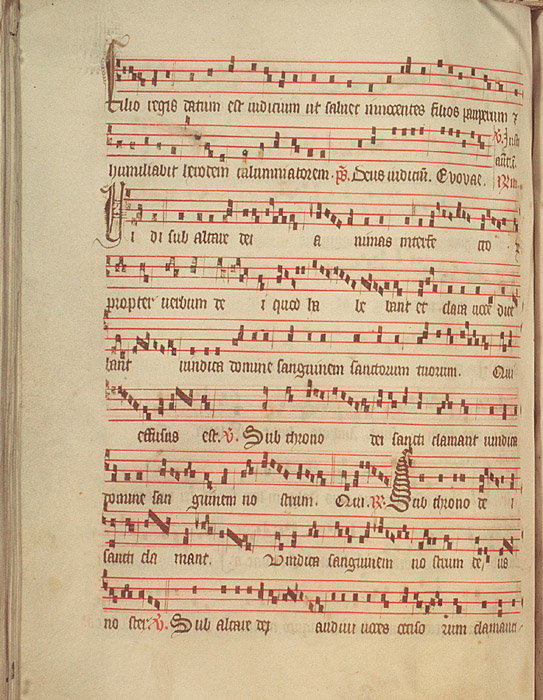 Filio regis datum est iudicium ut salvet innocentes filios pauperum ⁊
humiliabit herodem calumniatorem. ps. Deus iudiciū. Evovae.
Vi di sub altare dei a nimas interfe cto
propter verbum de i quod ha be bant et clara voce dice
bant vindica domine sanguinem sanctorum tuorum. Qui
effusus est. v. Sub throno dei sancti clamant vindica
domine san guinem no strum. Qui. R. Sub throno de i
sancti cla mant. Vindica sanguinem no strum de us
no ster. v. Sub altare dei audivi voces occiso rum clamanti